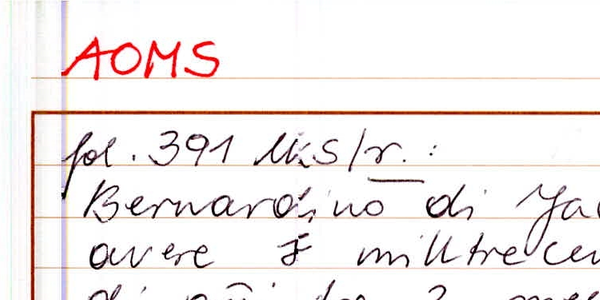 AOMS
fol. 391 lks/r. :
Bernardino di
avere milltrecen